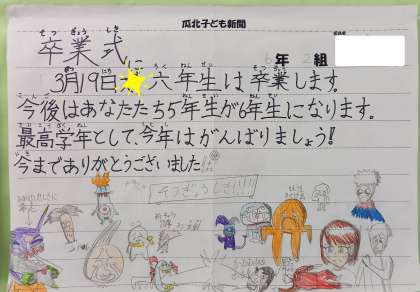 瓜北子ども新聞
そつ ぎょう しき
卒業式
6年2組
3月19日 六年生は卒業します。
今後はあなたたち5年生が6年生になります。
最高学年として、今年はがんばりましょう!
今までありがとうございました!!
そつぎょうしき!!!!!